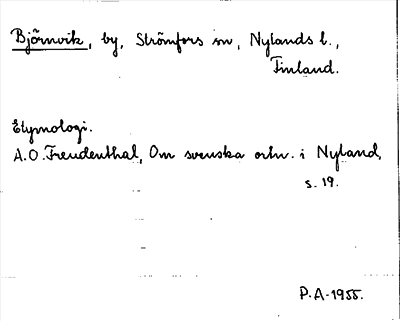 Björnvik, by, Strömfors sn, Nylands l.,
Finland.
Etymologi.
A.O. Freudenthal, Om svenska ortn. i Nyland,
s. 19.
P.A. 1955.